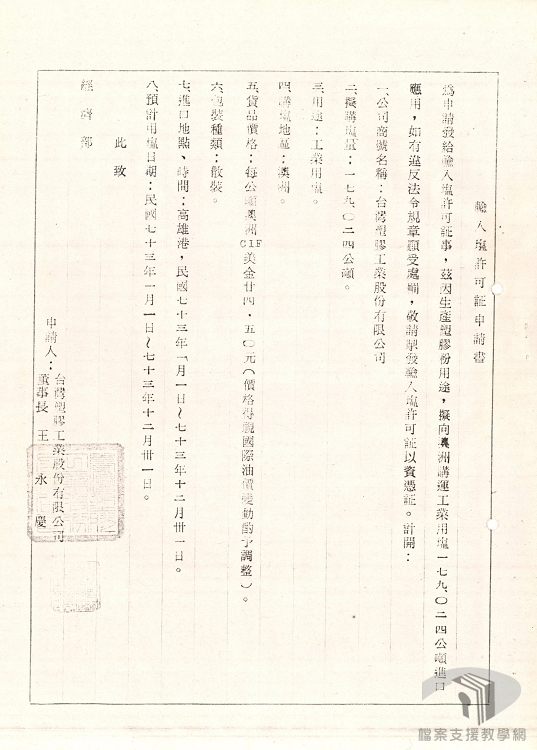 輸入塩許可証申請書
為申請發給輸入塩許可証事，茲因生產塑膠粉用途，擬向澳洲購運工業用塩一七九、〇二四公噸進口
應用，如有違反法令規章願受處罰，敬請準發輸入塩許可証以資憑証。計開：
一、公司商號名稱：台灣塑膠工業股份有限公司
二、擬購塩量：一七九、〇二四公噸。
三、用途：工業用塩。
四、購塩地區：澳洲。
五、貨品價格：每公噸澳洲CIF美金廿四．五〇元（價格得視國際油價變動酌予調整）。
六、包裝種類：散裝。
七、進口地點、時間：高雄港，民國七十三年一月一日～七十三年十二月卅一日。
八、預計用塩日期：民國七十三年一月一日～七十三年十二月卅一日。
此致
經濟部
申請人：台灣塑膠工業股份有限公司
董事長 王永慶
檔案支援教學網